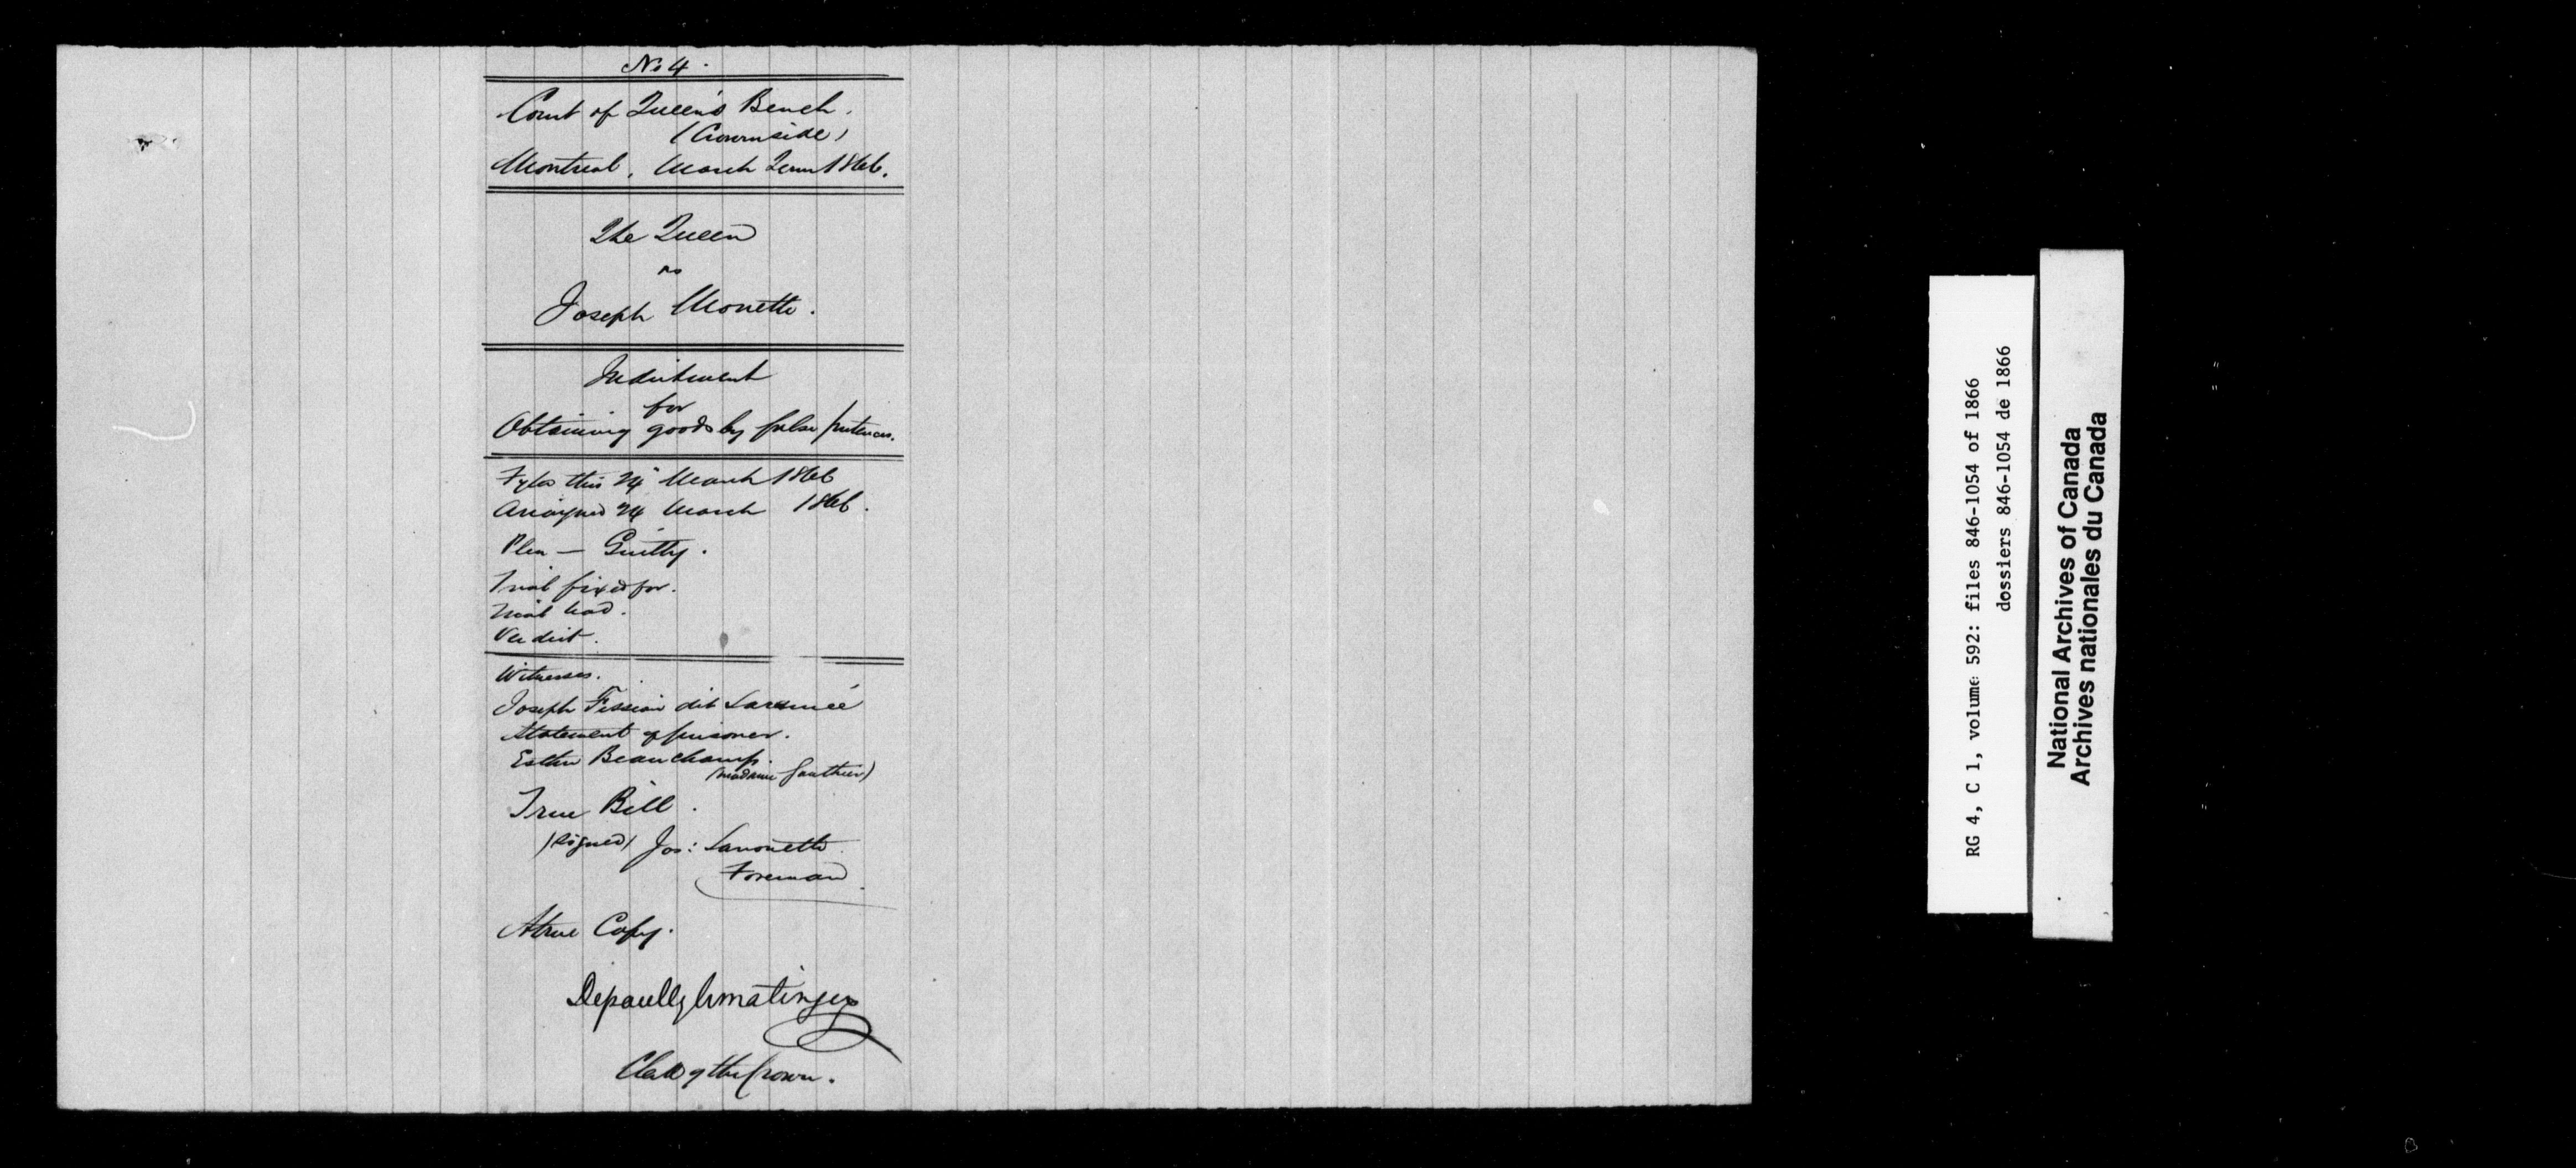 No 4.
Court of Queen's Bench.
(Crownside)
Montreal, March Term 1866.
The Queen
vs
Joseph Monette.
Indictment
for
Obtaining goods by false pretences.
Fyled this 24" March 1866
Arraigned 24 March 1866.
Plea — Guilty.
Trial fixed for.
Trial had.
Verdict.
Witnesses.
Joseph dit
Statement of prisoner.
Esther Beauchamp.
(Madame Gauthier)
True Bill.
(signed) Jos: Larouette
Foreman
A true Copy.
Clerk of the Crown.
RG 4, C 1, volume 592: files 846-1054 of 1866
dossiers 846-1054 de 1866
National Archives of Canada
Archives nationales du Canada